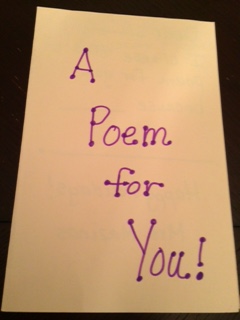 A
Poem
for
You!